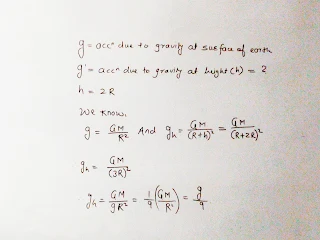 g = accⁿ due to gravity at surface of earth
g' = accⁿ due to gravity at height (h) = 2
h = 2R
We know,
g = GM/R² And gₕ = GM/(R+h)² = GM/(R+2R)²
gₕ = GM/(3R)²
gₕ = GM/9R² = 1/9 (GM/R²) = g/9